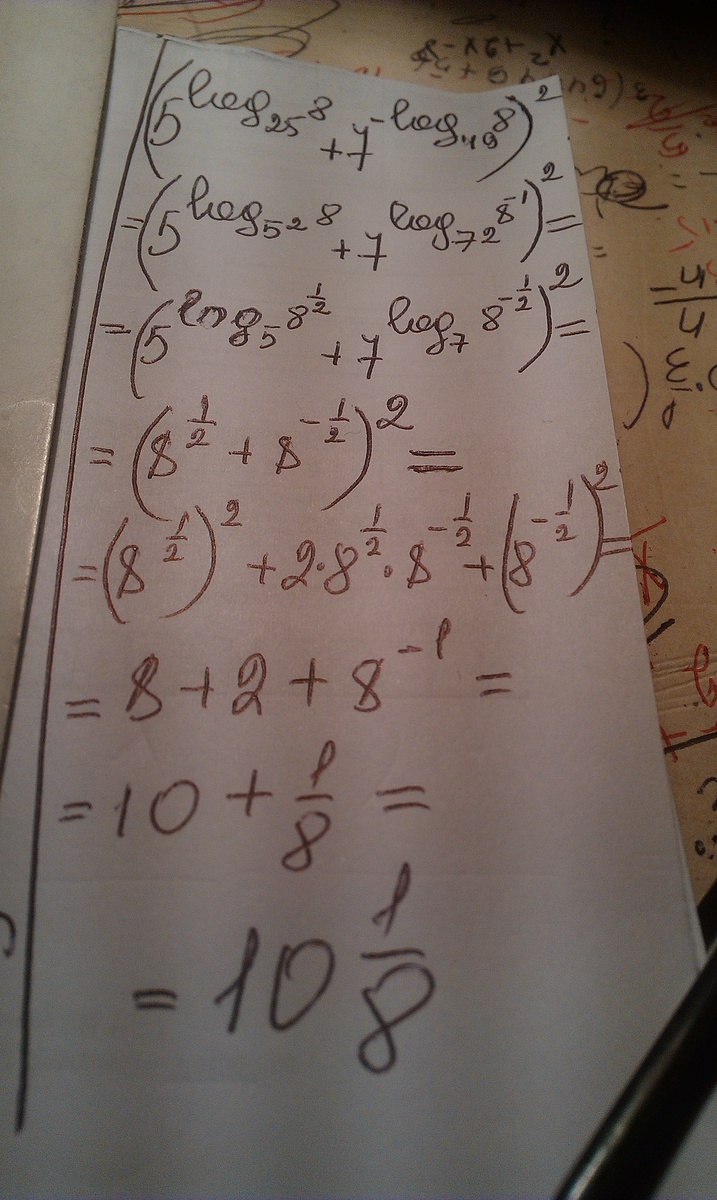 (5^{log_{25} 8} + 7^{-log_{49} 8})^2
= (5^{log_{5^2} 8} + 7^{log_{7^2} 8^{-1}})^2 =
= (5^{log_5 8^{1/2}} + 7^{log_7 8^{-1/2}})^2 =
= (8^{1/2} + 8^{-1/2})^2 =
= (8^{1/2})^2 + 2·8^{1/2}·8^{-1/2} + (8^{-1/2})^2 =
= 8 + 2 + 8^{-1} =
= 10 + 1/8 =
= 10 1/8